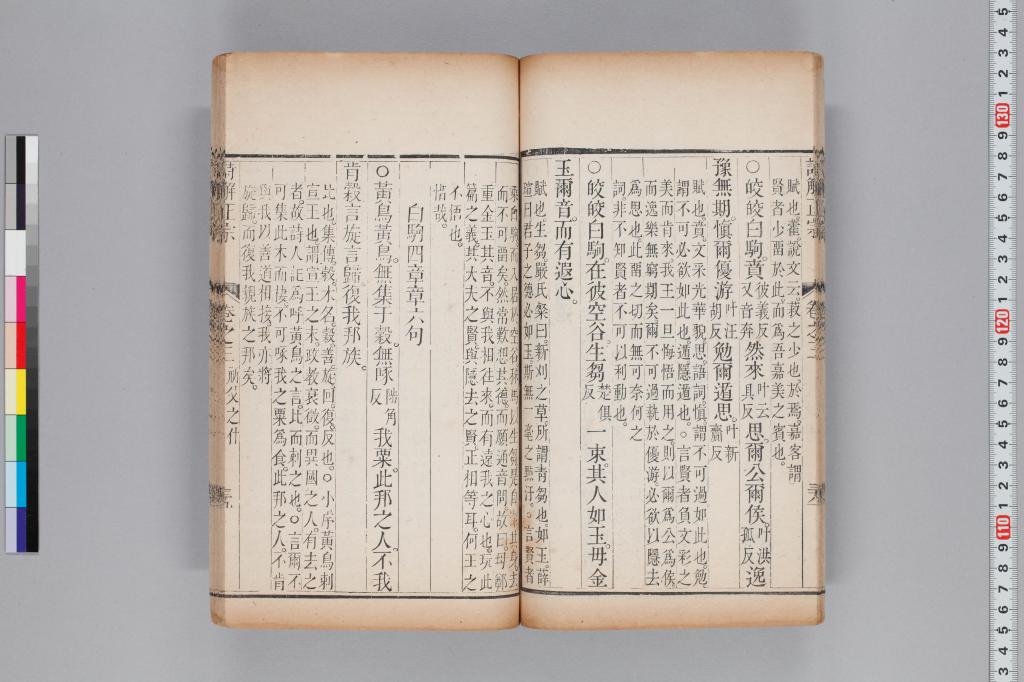 賦也藿說文云菽之少也於焉嘉客謂
賢者少畱於此而為吾嘉美之賓也
○皎皎白駒賁彼義反又音奔然來叶云具反思爾公爾侯叶洪孤反逸
豫無期慎爾優游叶汪胡反勉爾遁思叶新齎反
賦也賁文采光華貌思語詞慎謂不可過如此也勉
謂不可必欲如此也遁隱遁也○言賢者負文彩之
美而肯來我王一旦悔悟而用之則以爾為公為侯
而逸樂無窮期矣爾不可過執於優游必欲以隱去
為思也此畱之切而無可奈何之
詞非不知賢者不可以利動也
○皎皎白駒在彼空谷生芻楚俱反一束其人如玉毋金
玉爾音而有遐心
賦也生芻嚴氏粲曰新刈之草所謂青芻也如玉薛
瑄曰君子之德必如玉斯無一毫之㸃汙○言賢者
而不可畱矣然常歎想其德而願通音問故曰毋
重金玉其音不與我相往來而有遠我之心也玩此
篇之義其大夫之賢與隱去之賢正相等耳何王之
不悟也
惜哉
白駒四章章六句
○黃鳥黃鳥無集于穀無啄陟角反我粟此邦之人不我
肯穀言旋言歸復我邦族
比也集傳穀木名穀善旋回復反也○小序黃鳥刺
宣王也謂宣王之末政教衰微而異國之人有去之
者故詩人託為呼黃鳥之言比而刺之也○言爾不
可集此木而棲不可啄我之粟為食此邦之人不肯
與我以善道相接我亦將
旋歸而復我親族之邦矣
詩解正宗
卷之三
祈父之什